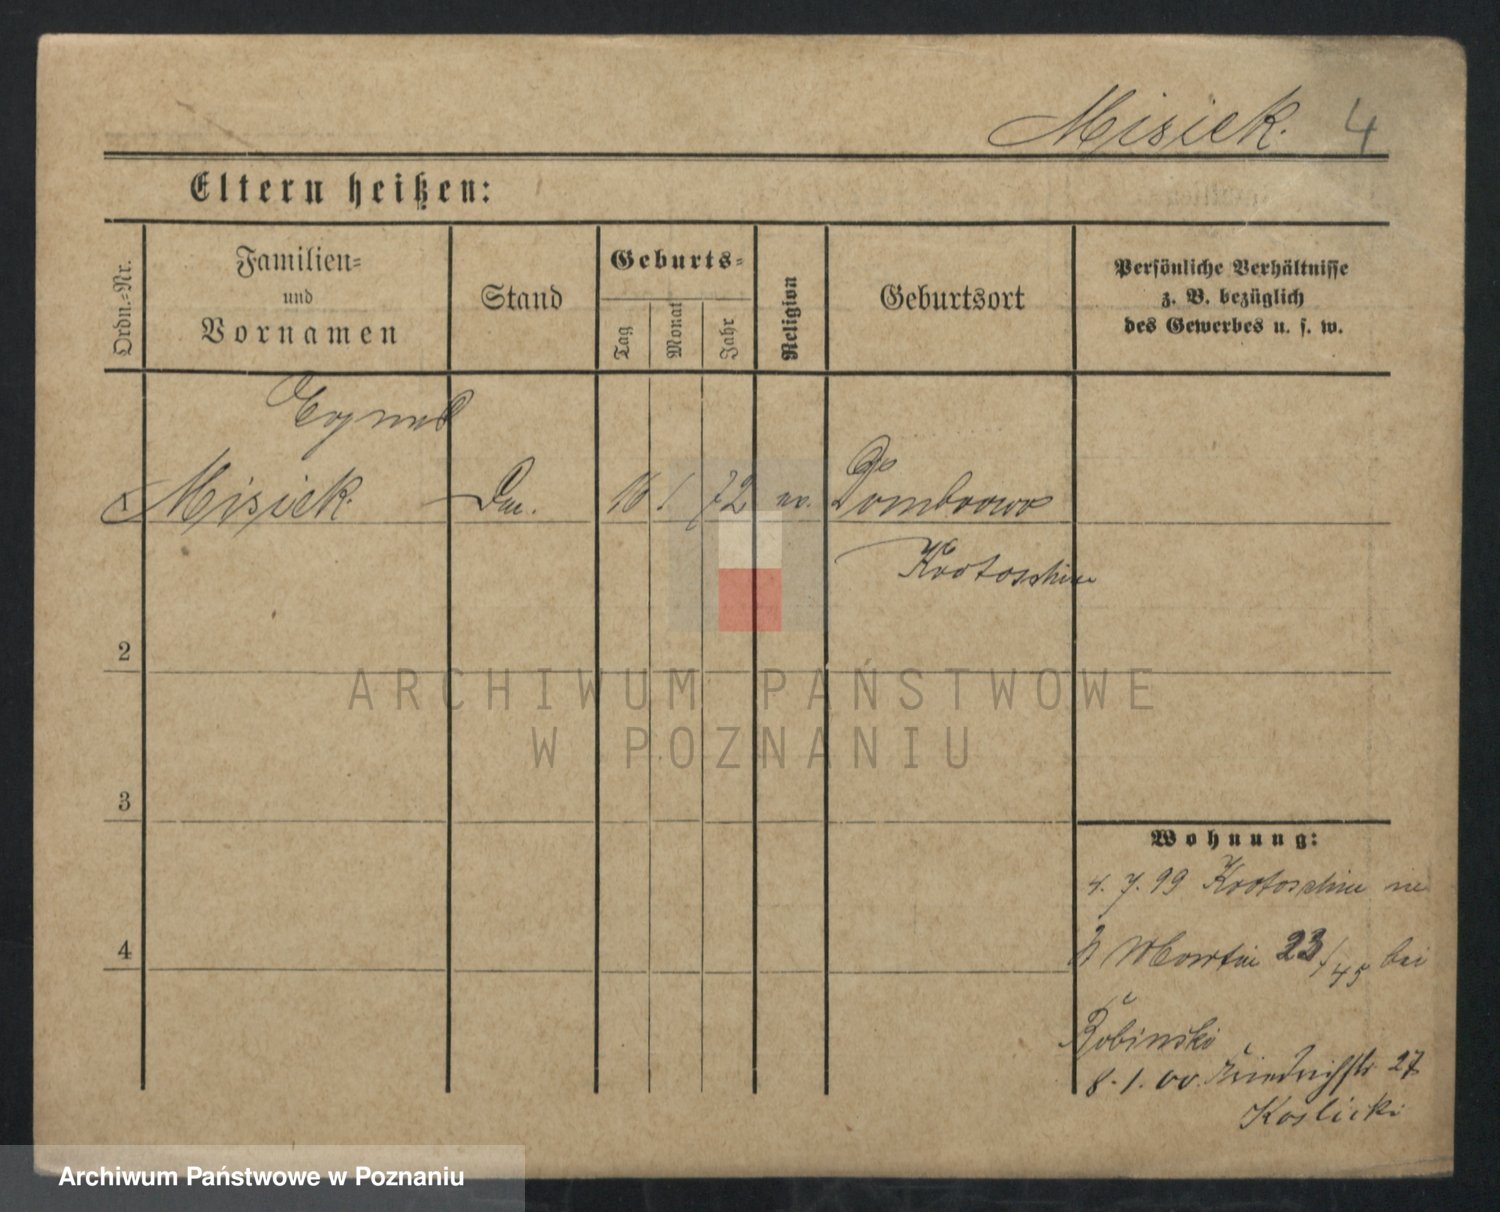 Misiek. 4
Eltern heißen:
Ordn.-Nr.
Familien-
und
Vornamen
Stand
Geburts-
Tag
Monat
Jahr
Religion
Geburtsort
Persönliche Verhältnisse
z. B. bezüglich
des Gewerbes u. s. w.
1 Misiek. 16 1 72 Dombrowo
Krotoschin
2
3
4
ARCHIWUM PAŃSTWOWE
W POZNANIU
Wohnung:
4. 7. 99 Krotoschin
Martin 23/45 bei
8. 1. 00. Friedrichstr 27
Koslicki
Archiwum Państwowe w Poznaniu